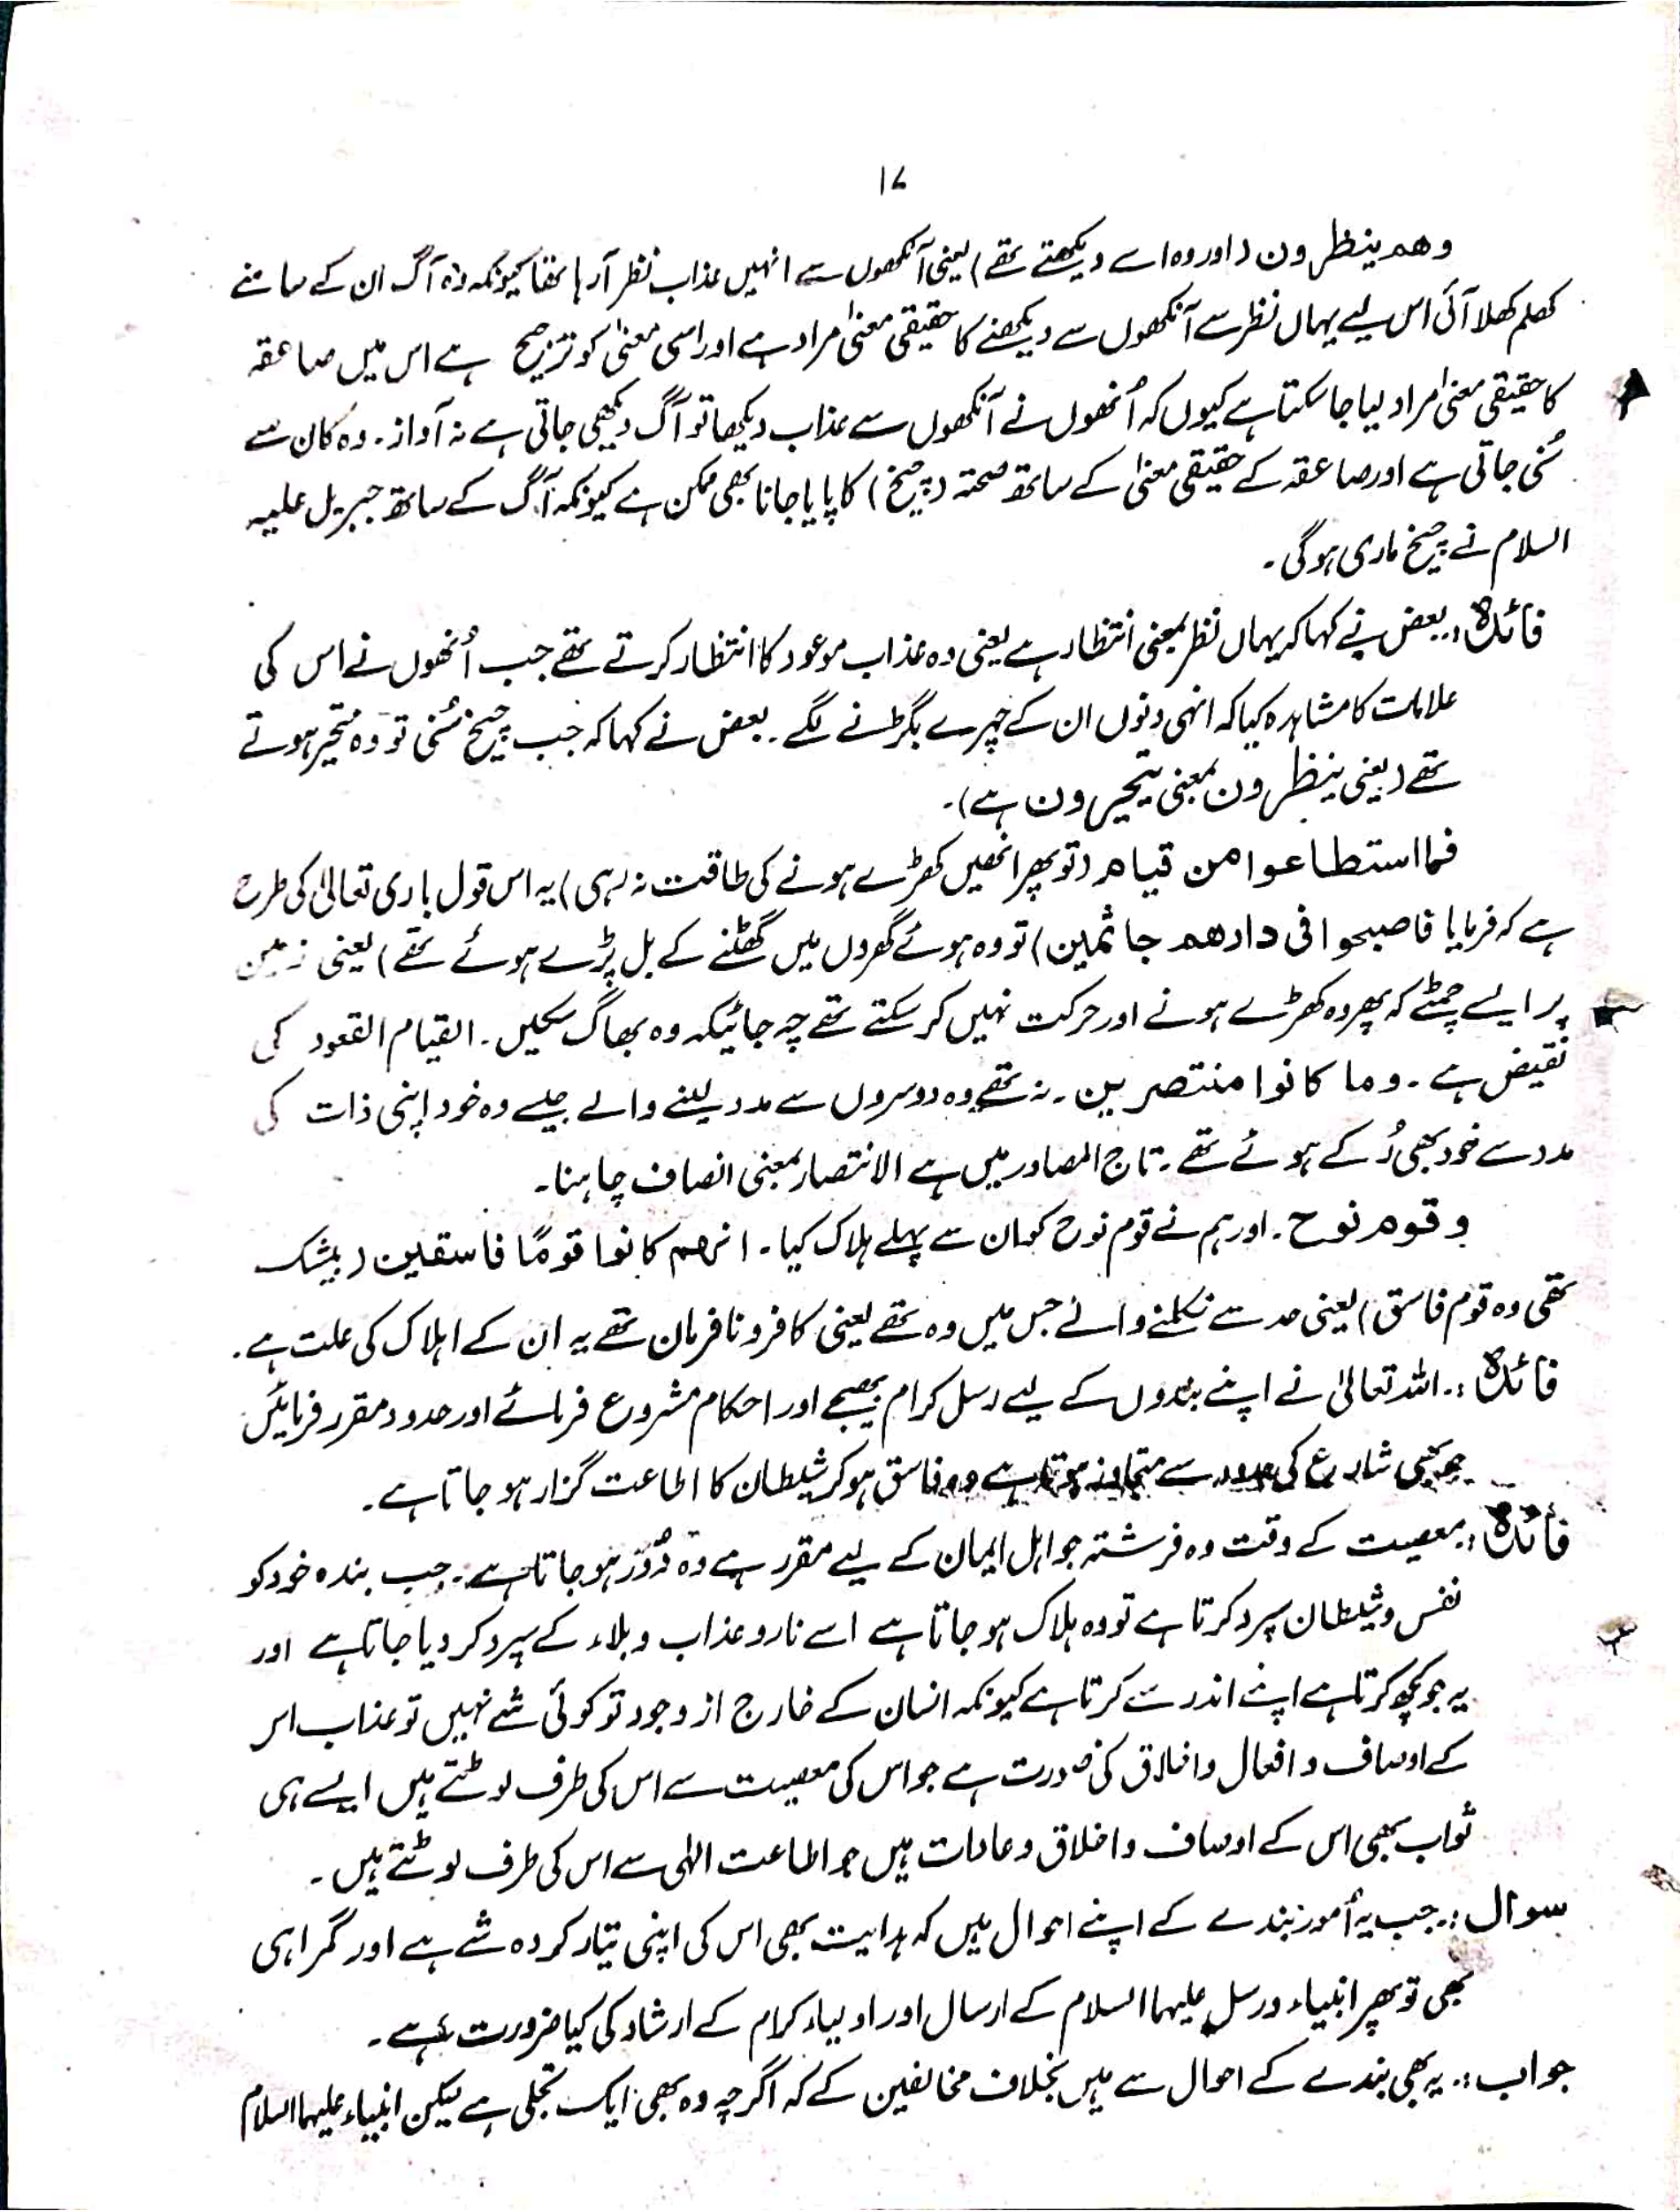 ۱۷
وهم ینظرون (اور وہ اسے دیکھتے تھے) یعنی آنکھوں سے انہیں عذاب نظر آرہا تھا کیونکہ وہ آگ ان کے سامنے
کھلم کھلا آئی اس لیے یہاں نظر سے آنکھوں سے دیکھنے کا حقیقی معنیٰ مراد ہے اور اسی معنیٰ کو ترجیح ہے اس میں صاعقہ
کا حقیقی معنیٰ مراد لیا جا سکتا ہے کیوں کہ اُنھوں نے آنکھوں سے عذاب دیکھا تو آگ دیکھی جاتی ہے نہ آواز۔ وہ کان سے
سُنی جاتی ہے اور صاعقہ کے حقیقی معنیٰ کے ساتھ صحتہ (چیخ) کا پایا جانا بھی ممکن ہے کیونکہ آگ کے ساتھ جبریل علیہ
السلام نے چیخ ماری ہوگی۔
فائدہ : بعض نے کہا کہ یہاں نظر بمعنی انتظار ہے یعنی وہ عذاب موعود کا انتظار کرتے تھے جب اُنھوں نے اس کی
علامات کا مشاہدہ کیا کہ انہی دنوں ان کے چہرے بگڑنے لگے۔ بعض نے کہا کہ جب چیخ سُنی تو وہ متحیر ہوتے
تھے (یعنی ینظرون بمعنی یتحیرون ہے)۔
فما استطاعوا من قیام (تو پھر انھیں کھڑے ہونے کی طاقت نہ رہی) یہ اس قول باری تعالیٰ کی طرح
ہے کہ فرمایا فاصبحوا فی دارهم جاثمین) تو وہ ہوئے گھروں میں گھٹنے کے بل پڑے ہوئے تھے) یعنی زمین
پر ایسے چمٹے کہ پھر وہ کھڑے ہونے اور حرکت نہیں کر سکتے تھے چہ جائیکہ وہ بھاگ سکیں۔ القیام القعود کی
نقیض ہے۔ وما کانوا منتصرین۔ نہ تھے وہ دوسروں سے مدد لینے والے جیسے وہ خود اپنی ذات کی
مدد سے خود بھی رُکے ہوئے تھے۔ تاج المصادر میں ہے الانتصار بمعنی انصاف چاہنا۔
وقوم نوح۔ اور ہم نے قوم نوح کو ان سے پہلے ہلاک کیا۔ انهم کانوا قومًا فاسقین (بیشک
تھی وہ قوم فاسق) یعنی حد سے نکلنے والے جس میں وہ تھے یعنی کافر و نافرمان تھے یہ ان کے اہلاک کی علت ہے۔
فائدہ :۔ اللہ تعالیٰ نے اپنے بندوں کے لیے رسل کرام بھیجے اور احکام مشروع فرمائے اور حدود مقرر فرمائیں
شارع کی حدود سے متجاوز ہوتا ہے وہ فاسق ہو کر شیطان کا اطاعت گزار ہو جاتا ہے۔
فائدہ :۔ معصیت کے وقت وہ فرشتہ جو اہل ایمان کے لیے مقرر ہے وہ دُور ہو جاتا ہے۔ جب بندہ خود کو
نفس و شیطان سپرد کرتا ہے تو وہ ہلاک ہو جاتا ہے اسے نار و عذاب و بلاء کے سپرد کر دیا جاتا ہے اور
یہ جو کچھ کرتا ہے اپنے اندر سے کرتا ہے کیونکہ انسان کے خارج از وجود تو کوئی شے نہیں تو عذاب اس
کے اوصاف و افعال و اخلاق کی صورت ہے جو اس کی معصیت سے اس کی طرف لوٹتے ہیں ایسے ہی
ثواب بھی اس کے اوصاف و اخلاق و عادات ہیں جو اطاعت الٰہی سے اس کی طرف لوٹتے ہیں۔
سوال :۔ جب یہ اُمور بندے کے اپنے احوال ہیں کہ ہدایت بھی اس کی اپنی تیار کردہ شے ہے اور گمراہی
بھی تو پھر انبیاء و رسل علیہما السلام کے ارسال اور اولیاء کرام کے ارشاد کی کیا ضرورت ہے۔
جواب :۔ یہ بھی بندے کے احوال سے ہیں بخلاف مخالفین کے کہ اگرچہ وہ بھی ایک تجلی ہے لیکن انبیاء علیہما السلام